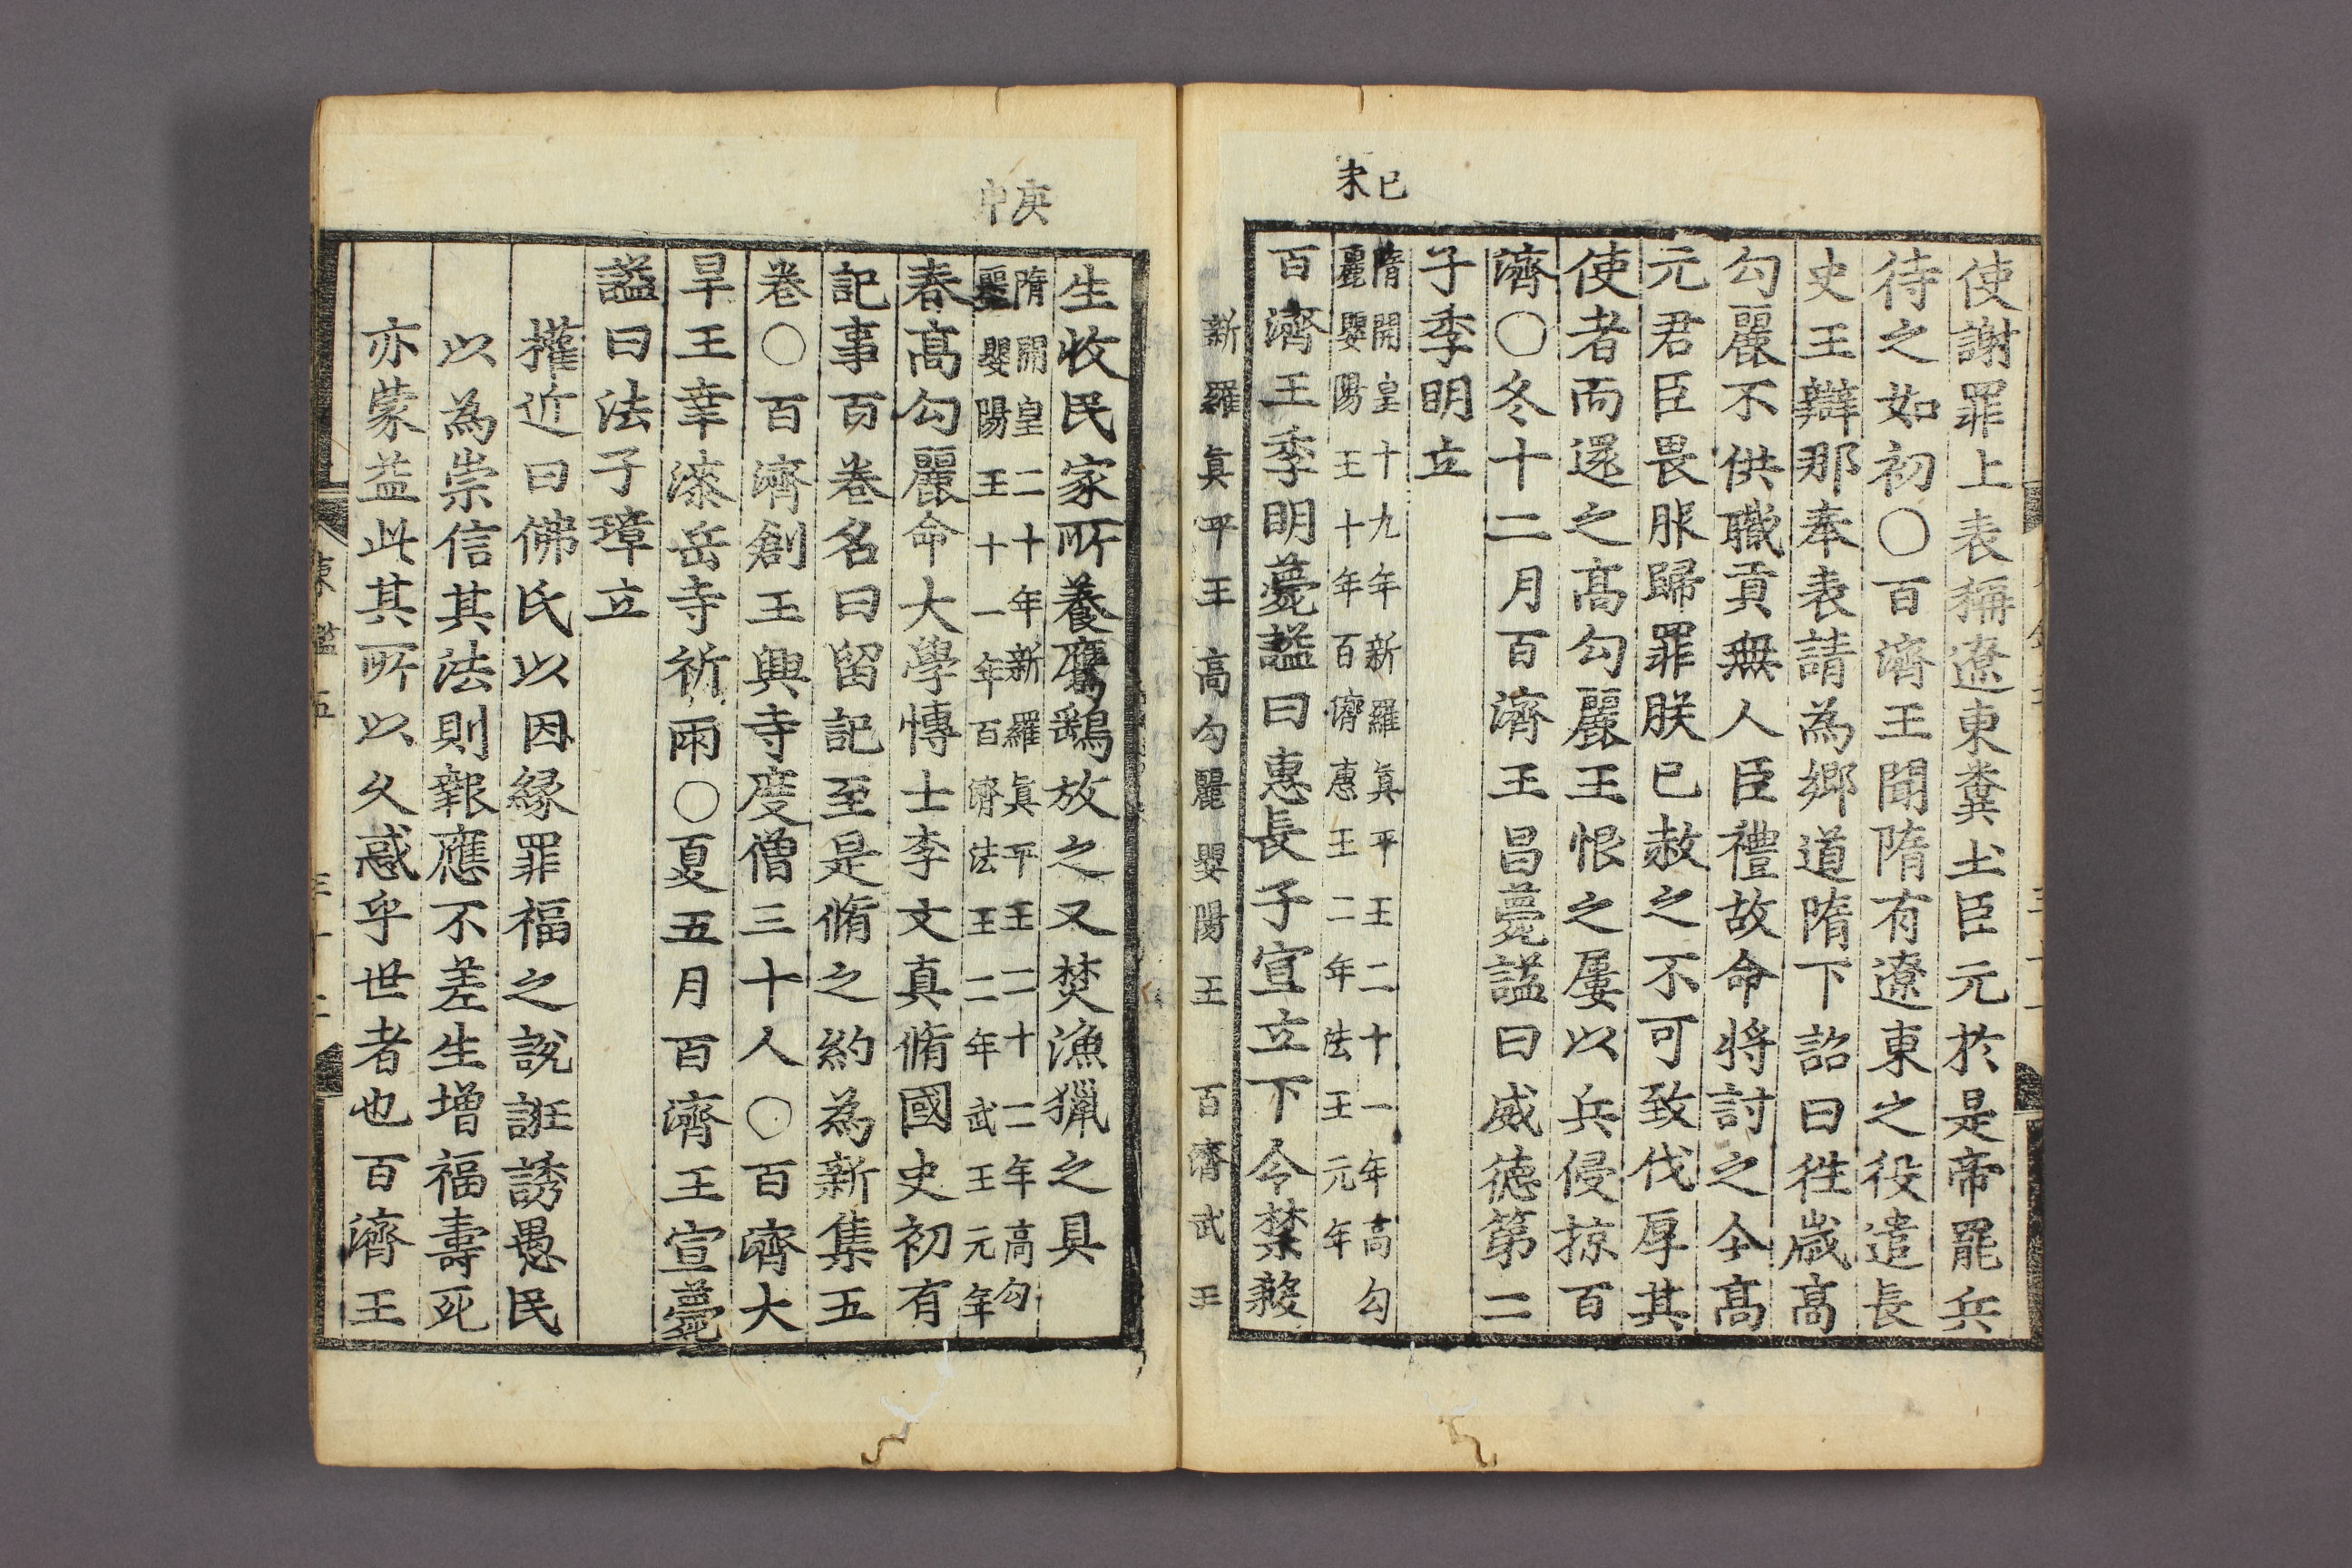 使謝罪上表稱遼東糞土臣元於是帝罷兵
待之如初○百濟王聞隋有遼東之役遣長
史王辯那奉表請為鄉道隋下詔曰徃歲高
勾麗不供職貢無人臣禮故命將討之今高
元君臣畏服歸罪朕已赦之不可致伐厚其
使者而還之高勾麗王恨之屢以兵侵掠百
濟○冬十二月百濟王昌薨諡曰威德第二
子季明立
己未
隋開皇十九年新羅眞平王二十一年高勾
麗嬰陽王十年百濟惠王二年法王元年
百濟王季明薨諡曰惠長子宣立下令禁殺
新羅眞平王 高勾麗嬰陽王 百濟武王
生收民家所養鷹鷂放之又焚漁獵之具
庚申
隋開皇二十年新羅眞平王二十二年高勾
麗嬰陽王十一年百濟法王二年武王元年
春高勾麗命大學博士李文真脩國史初有
記事百卷名曰留記至是脩之約為新集五
卷○百濟創王興寺度僧三十人○百濟大
旱王幸漆岳寺祈雨○夏五月百濟王宣薨
諡曰法子璋立
權近曰佛氏以因緣罪福之說誑誘愚民
以為崇信其法則報應不差生增福壽死
亦蒙益此其所以久惑乎世者也百濟王
東鑑五 三十二